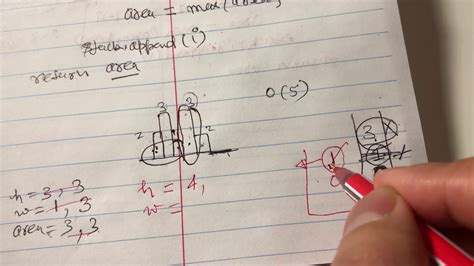 area = max(area,
stack.append(i)
return area
3 3
2 2
O(5)
3
1
0
h = 3, 3
w = 1, 3
area = 3, 3
h = 4,
w =